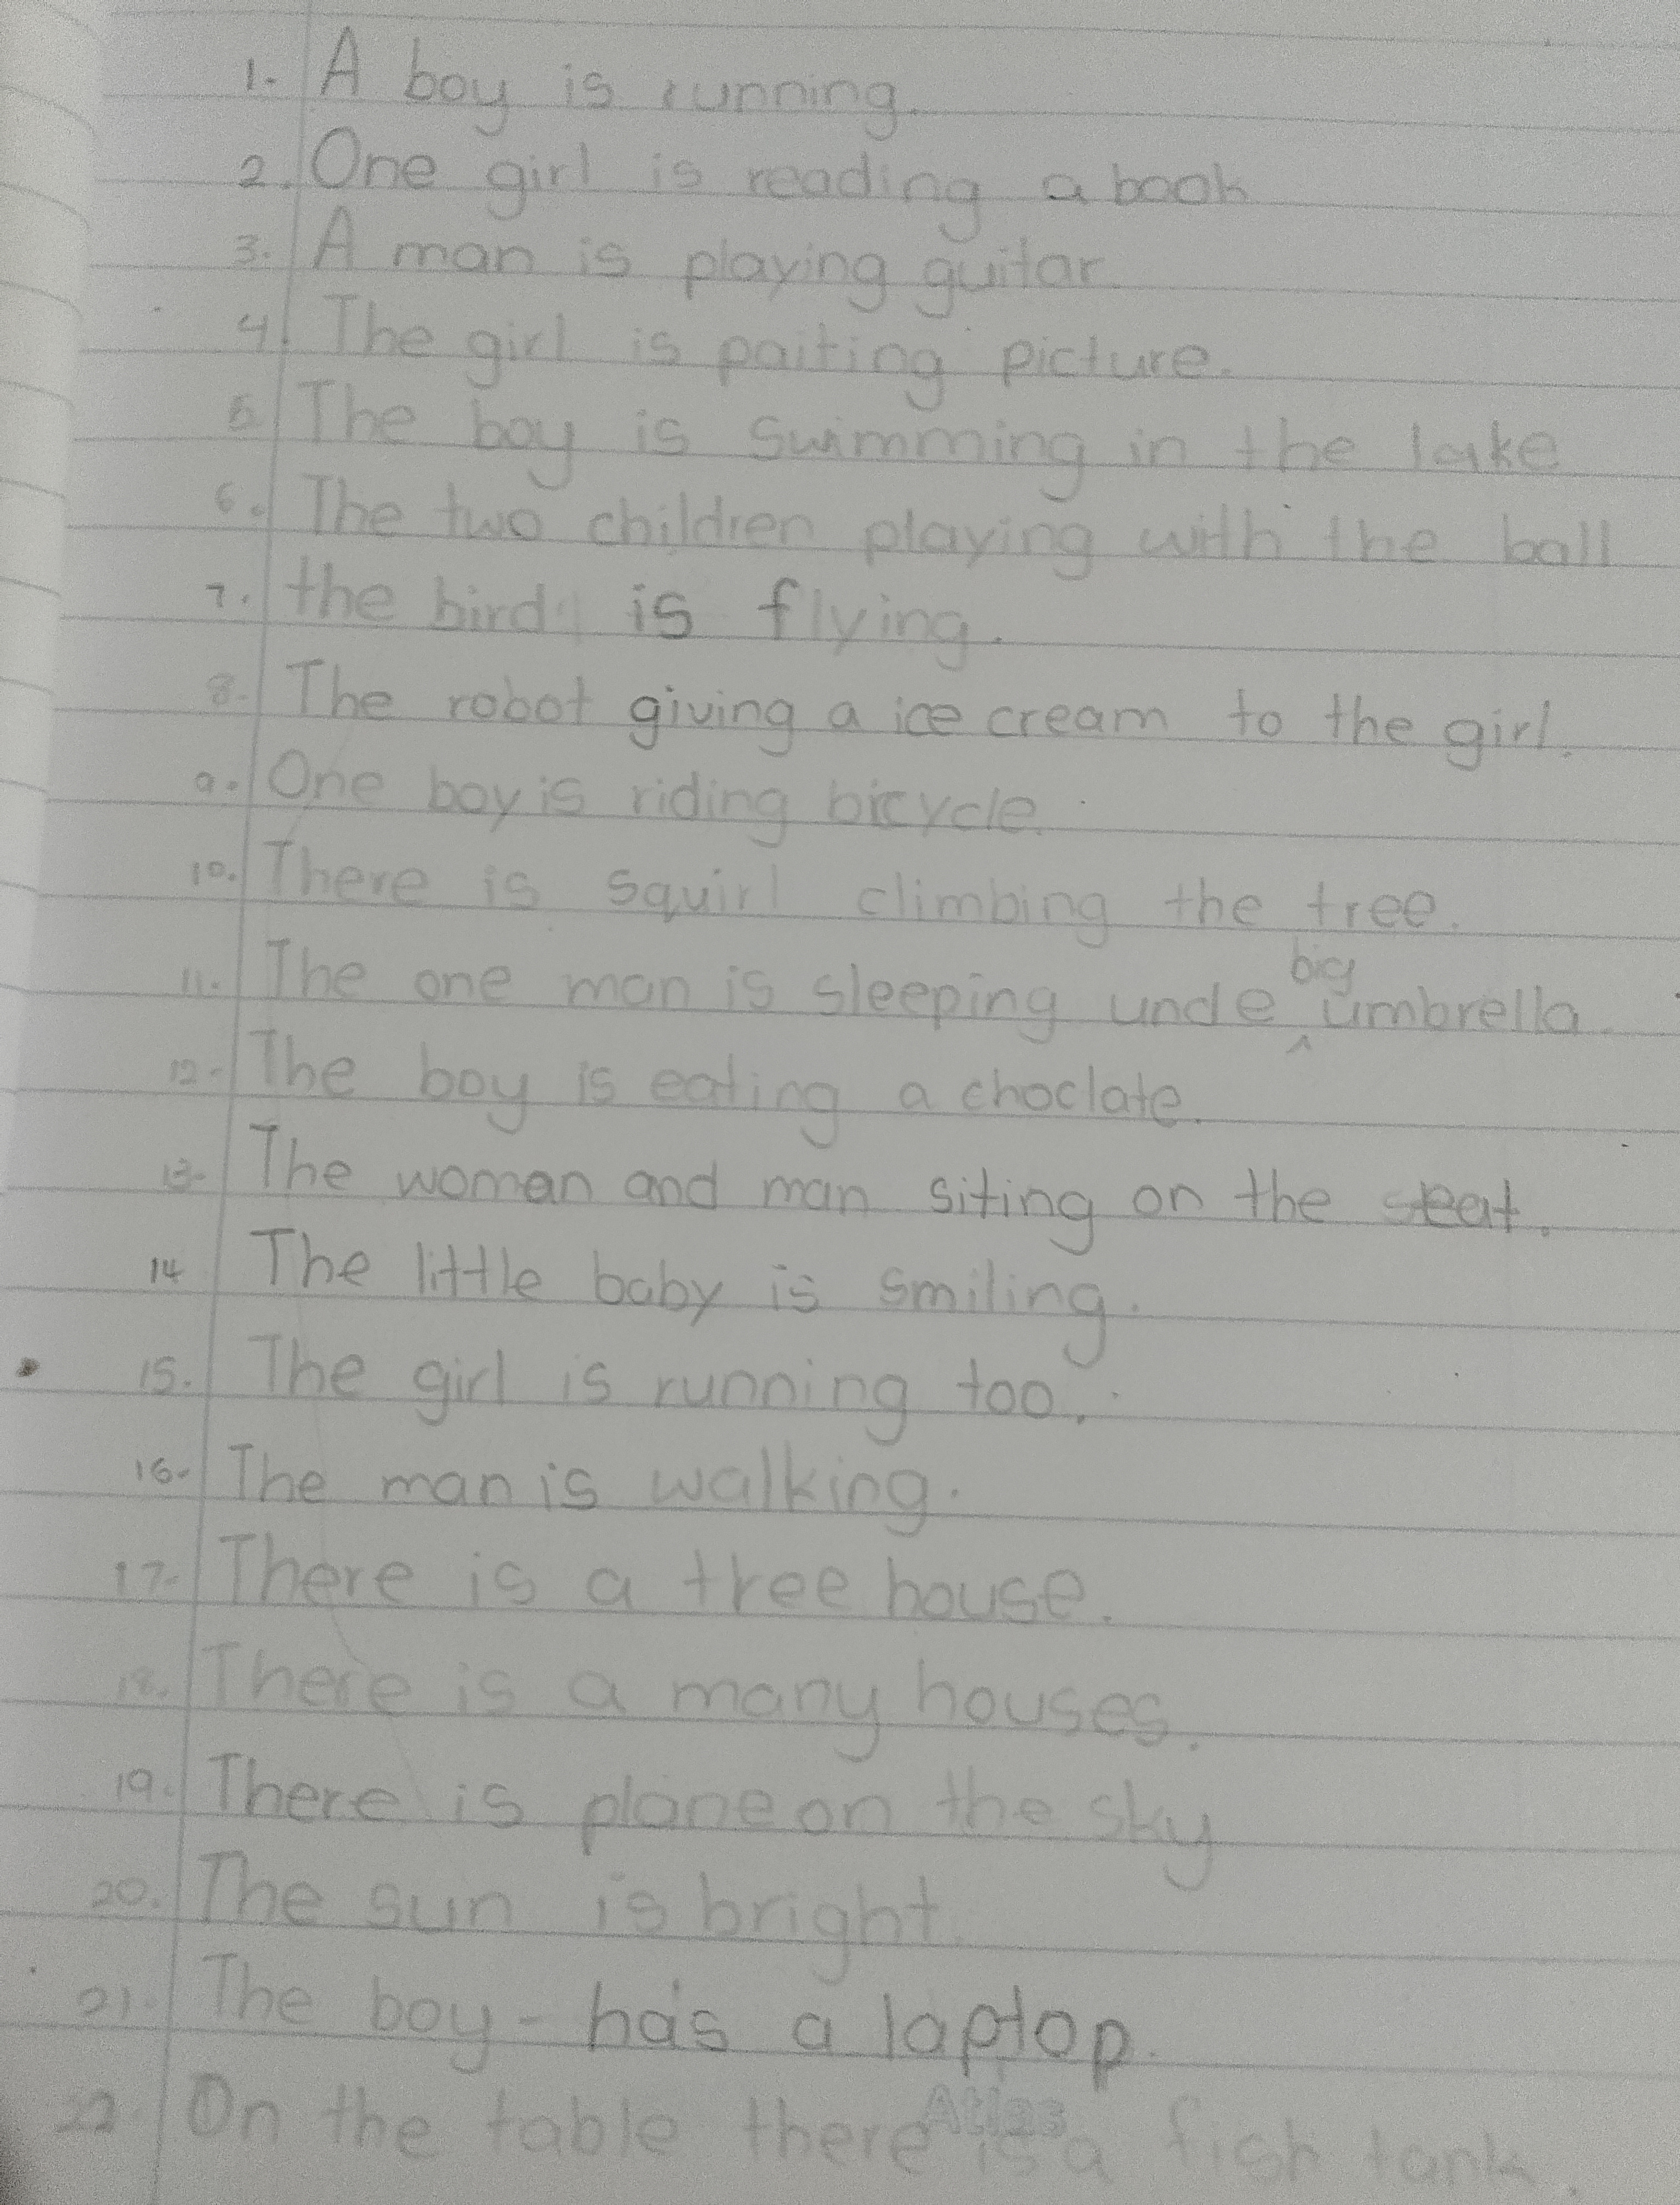 1. A boy is running.
2. One girl is reading a book
3. A man is playing guitar.
4. The girl is paiting picture.
5. The boy is swimming in the lake
6. The two children playing with the ball
7. the bird is flying.
8. The robot giving a ice cream to the girl.
9. One boy is riding bicycle.
10. There is squirl climbing the tree.
11. The one man is sleeping unde big umbrella.
12. The boy is eating a choclate.
13. The woman and man siting on the seat.
14 The little baby is smiling.
15. The girl is running too.
16. The man is walking.
17. There is a tree house.
18. There is a many houses.
19. There is plane on the sky
20. The sun is bright.
21. The boy - has a laptop.
22. On the table there is a fish tank.
Atlas